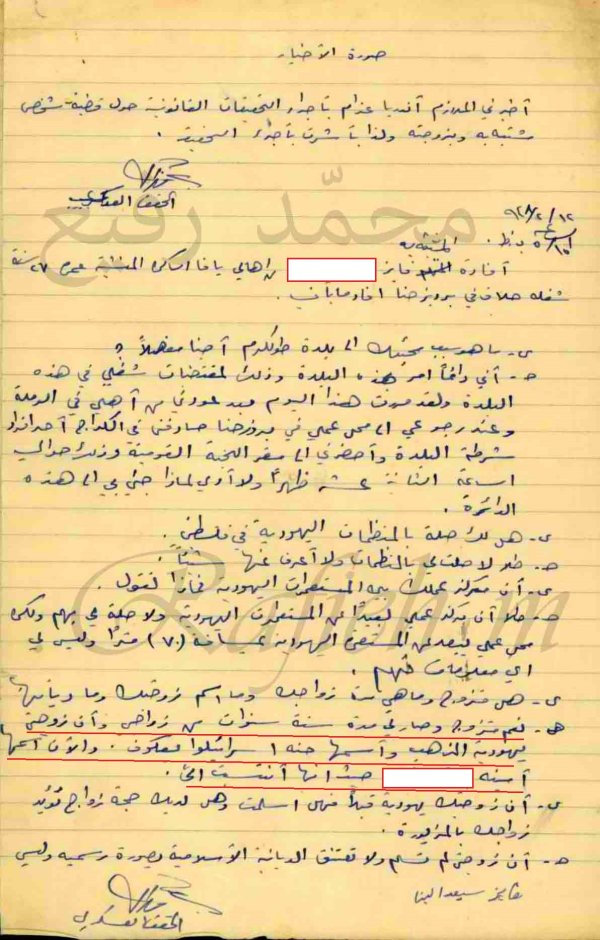 صورة الأخبار
أخبرني الملازم آنديا عزام بأجراء التحقيقات القانونية حول قضية شخص
مشتبه به وبزوجته ولذا باشرت بأجراء التحقيق .
المحقق العسكري
١٢/٢/٩٤٨
بعد ظهر .
المشتبه به
أفادة فايز من اهالي يافا ساكن المنشية عمره ٢٧ سنة
شغله حلاق في برديزحنا افاد ما يأتي .
س - ما هو سبب مجيئك الى بلدة طولكرم أجبنا مفصلاً ؟
ج - أني دائماً امر هذه البلدة وذلك لمقتضيات شغلي في هذه
البلدة ولقد مررت هذا اليوم بعد عودتي من أهلي في الرملة
وعند رجوعي الى محل عملي في برديزحنا صادفني في الكراج أحد افراد
شرطة البلدة وأحضرني الى مقر اللجنة القومية وذلك حوالي
الساعة الثانية عشر ظهراً ولا أدري لماذا جيئ بي الى هذه
الدائرة .
س - هل لك صلة بالمنظمات اليهودية في فلسطين .
ج - كلا لا صلة لي بالمنظمات ولا أعرف عنها شيئاً .
س - أن مركز عملك بين المستعمرات اليهودية فماذا تقول .
ج - كلا أن مركز عملي بعيداً عن المستعمرات اليهودية ولا صلة لي بهم ولكن
محل عملي يبعد عن المستعمرة اليهودية بمسافة (٧٠) متراً وليس لي
اي معلومات عنهم .
س - هل متزوج وما هي مدة زواجك وما اسم زوجتك وما ديانتها
ج - نعم متزوج وصار لي مدة ستة سنوات من زواجي وأن زوجتي
يهودية المذهب وأسمها حنه اسرائيلوا معكوف . والآن اسمها
أمينه حيث انها أنتسبت اليّ .
س - أن زوجتك يهودية قبلاً فهل اسلمت وهل لديك حجة زواج تؤيد
زواجك بالمزبورة .
ج - أن زوجتي لم تسلم ولا تعتنق الديانة الأسلامية بصورة رسمية وليس
فايز سعيد البنا
المحقق العسكري
محمّد رفيع